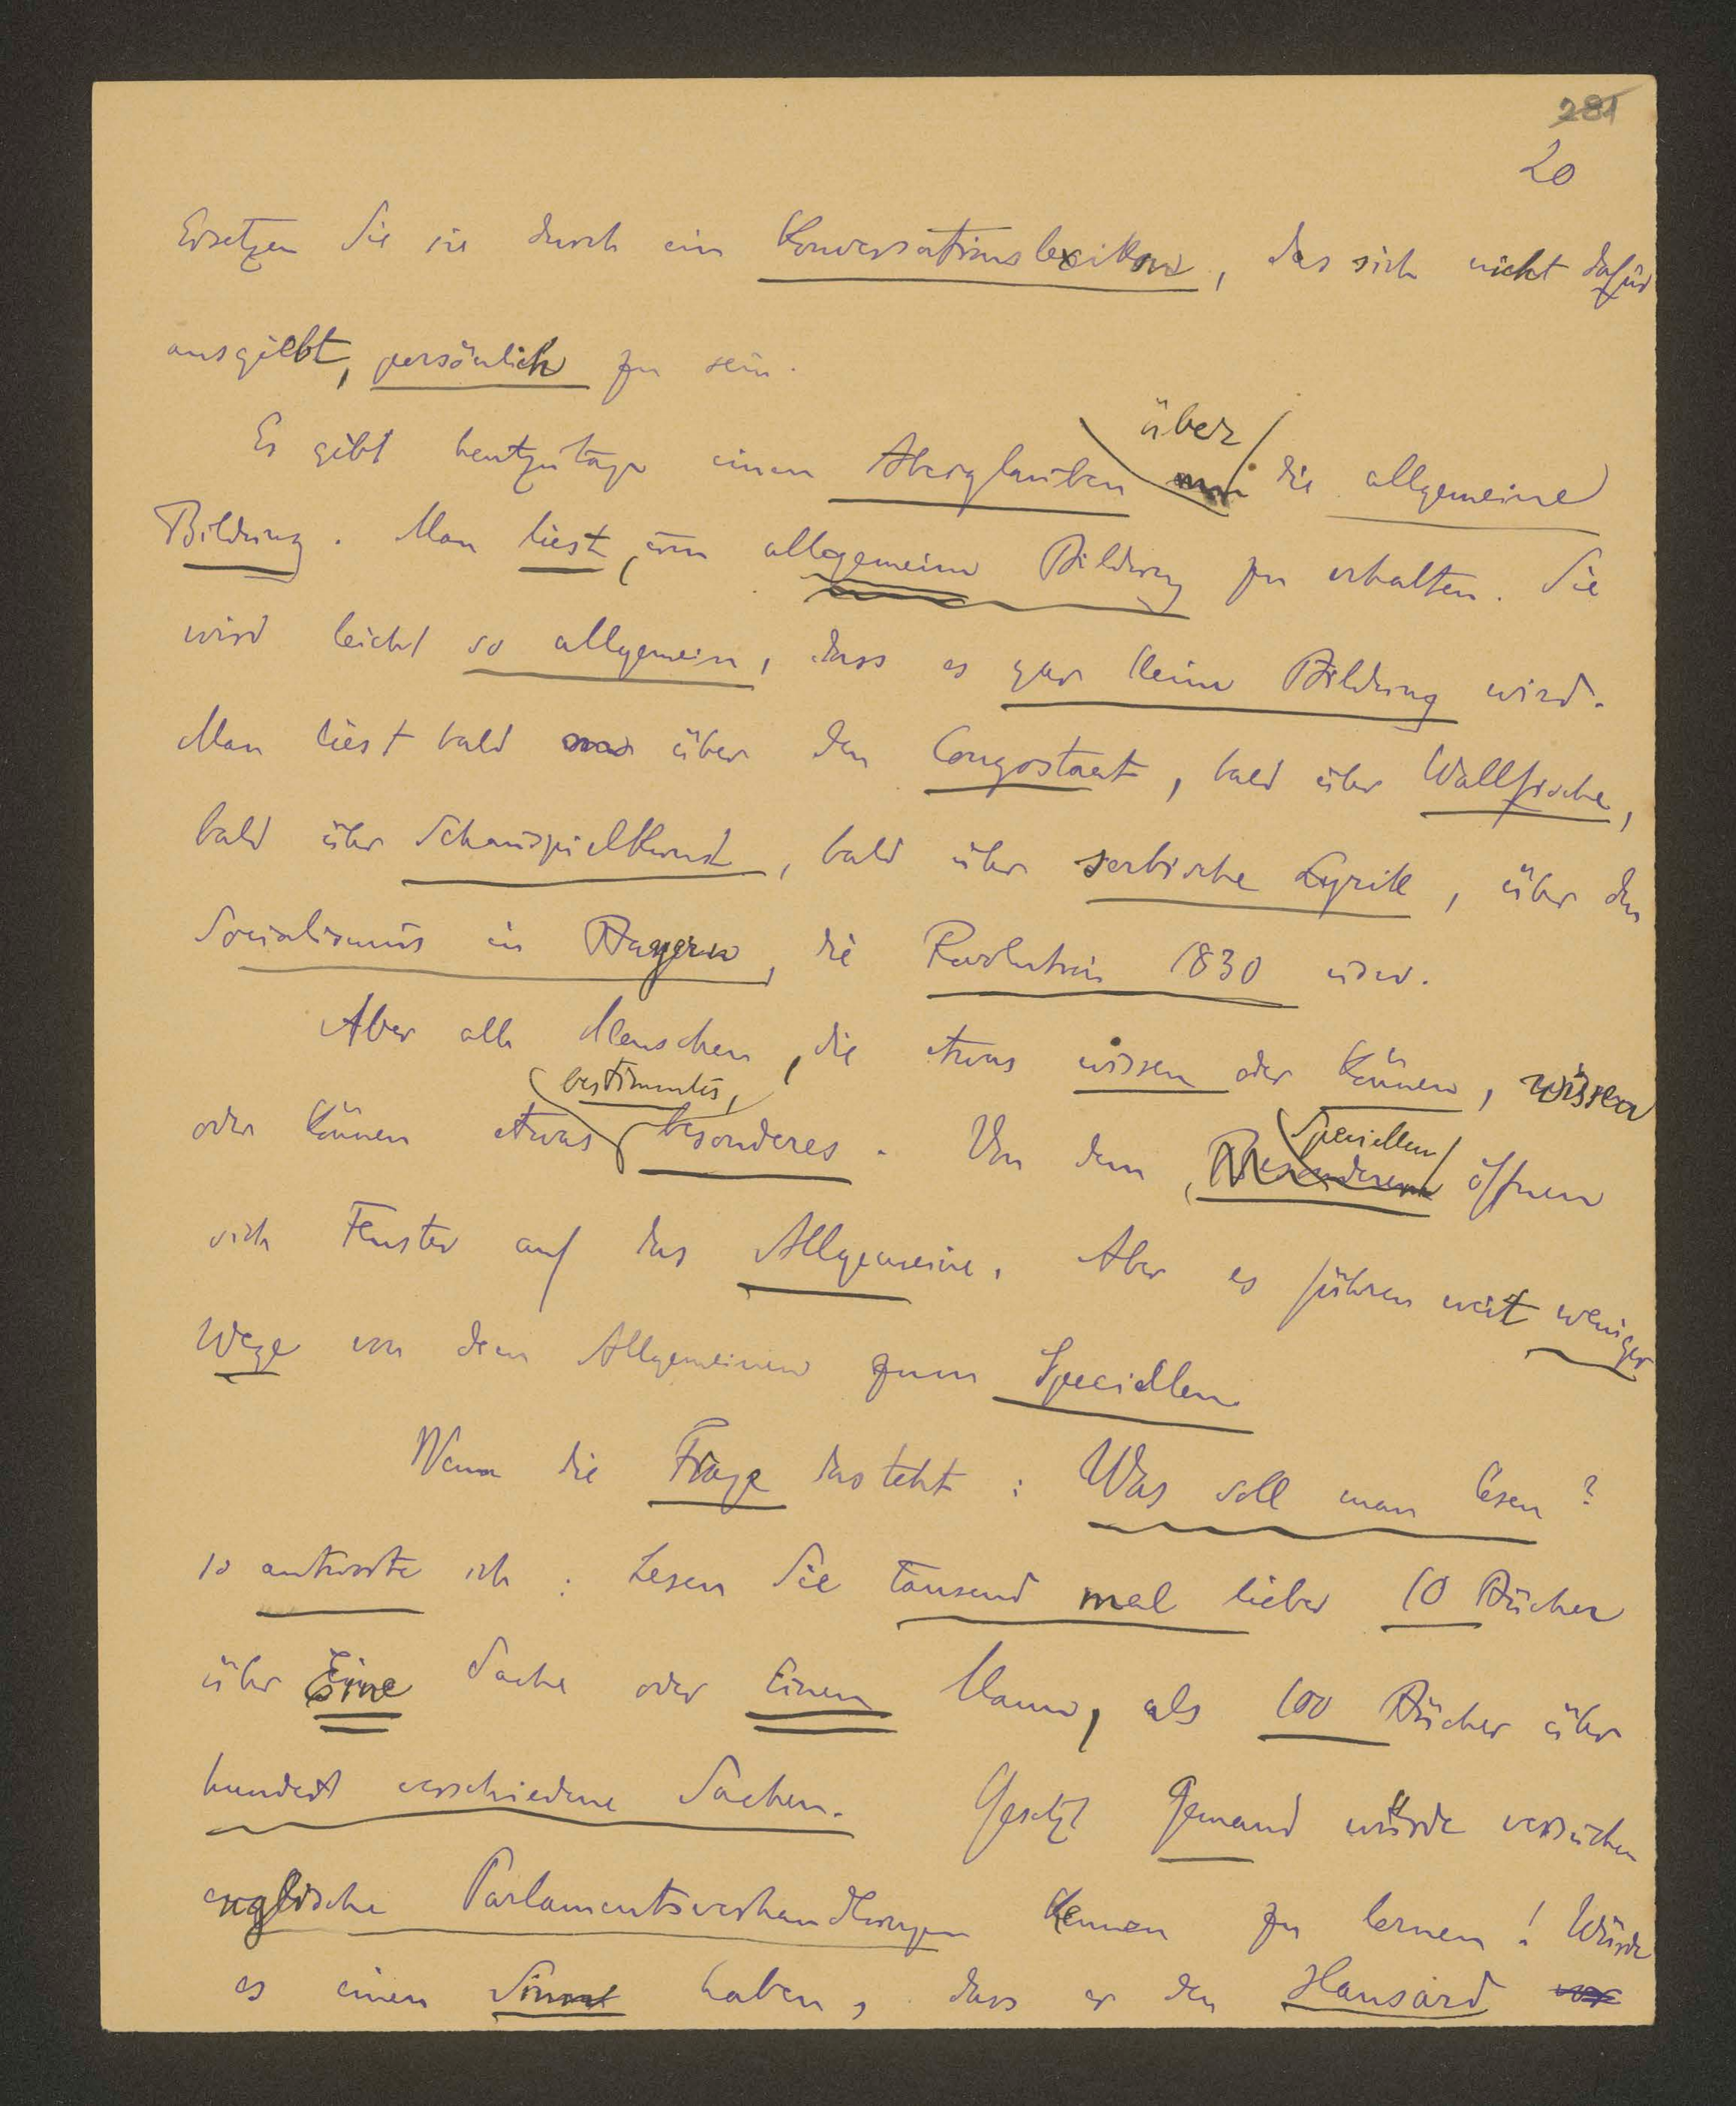 281
20
Ersetzen Sie sie durch ein Konversationslexikon, das sich nicht dafür
ausgiebt, persönlich zu sein.
über
Es gibt heutzutage einen Aberglauben die allgemeine
Bildung. Man liest, um allgemeine Bildung zu erhalten. Sie
wird leicht so allgemein, dass es gar keine Bildung wird.
Man liest bald über den Congostaat, bald über Wallfische,
bald über Schauspielkunst, bald über serbische Lyrik, über den
Socialismus in Bayern, die Revolution 1830 usw.
Aber alle Menschen, die etwas wissen oder können, wissen
bestimmtes,
oder können etwas besonderes. Von dem Besonderen öffnen
Speciellen
sich Fenster auf das Allgemeine. Aber es führen weit weniger
Wege von dem Allgemeinen zum Speciellen.
Wenn die Frage dasteht: Was soll man lesen?
so antworte ich: Lesen Sie tausend mal lieber 10 Bücher
über Eine Sache oder Einen Mann, als 100 Bücher über
hundert verschiedene Sachen. Gesetzt Jemand würde versuchen
englische Parlamentsverhandlungen kennen zu lernen! Würde
es einen Sinn haben, dass er den Hansard